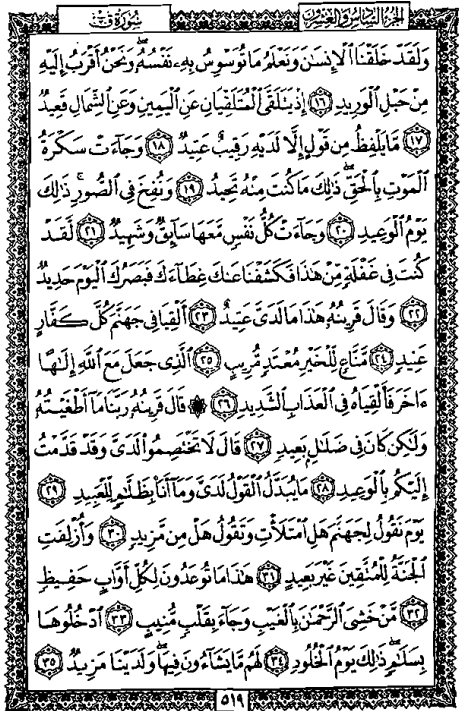 الجزء السادس والعشرون
سورة ق
وَلَقَدْ خَلَقْنَا ٱلْإِنسَٰنَ وَنَعْلَمُ مَا تُوَسْوِسُ بِهِۦ نَفْسُهُۥ ۖ وَنَحْنُ أَقْرَبُ إِلَيْهِ
مِنْ حَبْلِ ٱلْوَرِيدِ ١٦ إِذْ يَتَلَقَّى ٱلْمُتَلَقِّيَانِ عَنِ ٱلْيَمِينِ وَعَنِ ٱلشِّمَالِ قَعِيدٌ
١٧ مَّا يَلْفِظُ مِن قَوْلٍ إِلَّا لَدَيْهِ رَقِيبٌ عَتِيدٌ ١٨ وَجَآءَتْ سَكْرَةُ
ٱلْمَوْتِ بِٱلْحَقِّ ۖ ذَٰلِكَ مَا كُنتَ مِنْهُ تَحِيدُ ١٩ وَنُفِخَ فِى ٱلصُّورِ ۚ ذَٰلِكَ
يَوْمُ ٱلْوَعِيدِ ٢٠ وَجَآءَتْ كُلُّ نَفْسٍ مَّعَهَا سَآئِقٌ وَشَهِيدٌ ٢١ لَّقَدْ
كُنتَ فِى غَفْلَةٍ مِّنْ هَٰذَا فَكَشَفْنَا عَنكَ غِطَآءَكَ فَبَصَرُكَ ٱلْيَوْمَ حَدِيدٌ
٢٢ وَقَالَ قَرِينُهُۥ هَٰذَا مَا لَدَىَّ عَتِيدٌ ٢٣ أَلْقِيَا فِى جَهَنَّمَ كُلَّ كَفَّارٍ
عَنِيدٍ ٢٤ مَّنَّاعٍ لِّلْخَيْرِ مُعْتَدٍ مُّرِيبٍ ٢٥ ٱلَّذِى جَعَلَ مَعَ ٱللَّهِ إِلَٰهًا
ءَاخَرَ فَأَلْقِيَاهُ فِى ٱلْعَذَابِ ٱلشَّدِيدِ ٢٦ ۞ قَالَ قَرِينُهُۥ رَبَّنَا مَآ أَطْغَيْتُهُۥ
وَلَٰكِن كَانَ فِى ضَلَٰلٍۭ بَعِيدٍ ٢٧ قَالَ لَا تَخْتَصِمُوا۟ لَدَىَّ وَقَدْ قَدَّمْتُ
إِلَيْكُم بِٱلْوَعِيدِ ٢٨ مَا يُبَدَّلُ ٱلْقَوْلُ لَدَىَّ وَمَآ أَنَا۠ بِظَلَّٰمٍ لِّلْعَبِيدِ ٢٩
يَوْمَ نَقُولُ لِجَهَنَّمَ هَلِ ٱمْتَلَأْتِ وَتَقُولُ هَلْ مِن مَّزِيدٍ ٣٠ وَأُزْلِفَتِ
ٱلْجَنَّةُ لِلْمُتَّقِينَ غَيْرَ بَعِيدٍ ٣١ هَٰذَا مَا تُوعَدُونَ لِكُلِّ أَوَّابٍ حَفِيظٍ
٣٢ مَّنْ خَشِىَ ٱلرَّحْمَٰنَ بِٱلْغَيْبِ وَجَآءَ بِقَلْبٍ مُّنِيبٍ ٣٣ ٱدْخُلُوهَا
بِسَلَٰمٍ ۖ ذَٰلِكَ يَوْمُ ٱلْخُلُودِ ٣٤ لَهُم مَّا يَشَآءُونَ فِيهَا وَلَدَيْنَا مَزِيدٌ ٣٥
٥١٩